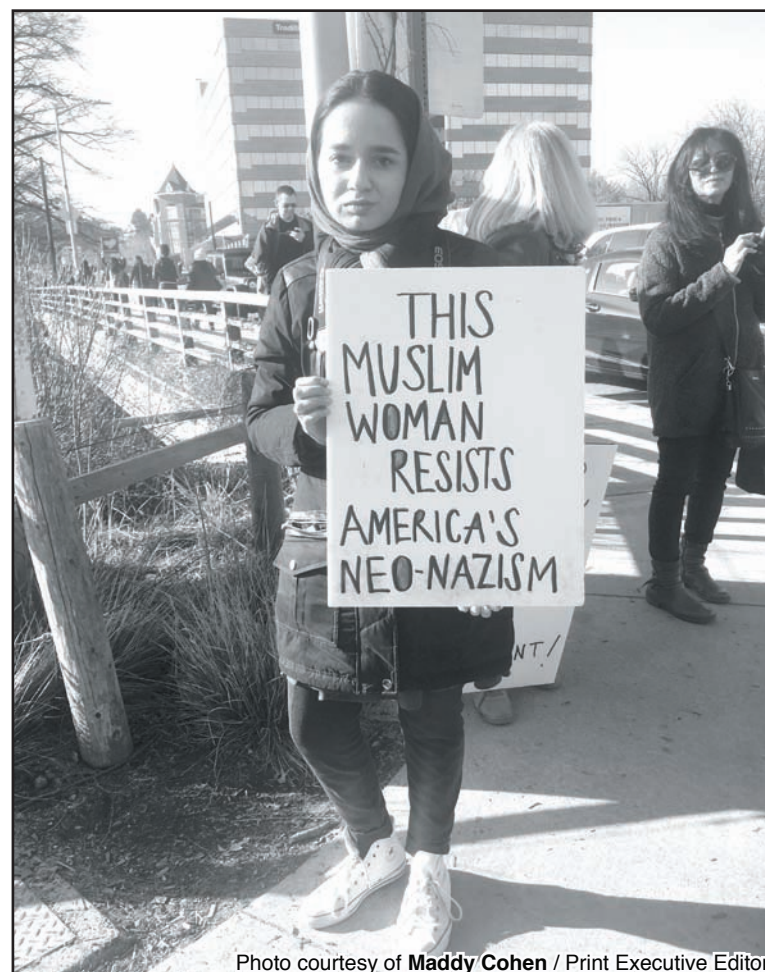 THIS
MUSLIM
WOMAN
RESISTS
AMERICA'S
NEO-NAZISM
NT!
Photo courtesy of Maddy Cohen / Print Executive Editor